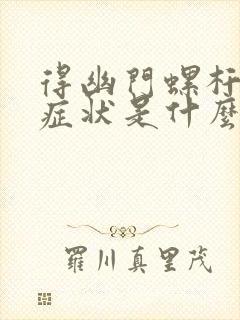 得幽門螺杆
症状是什麼
羅川真里茂